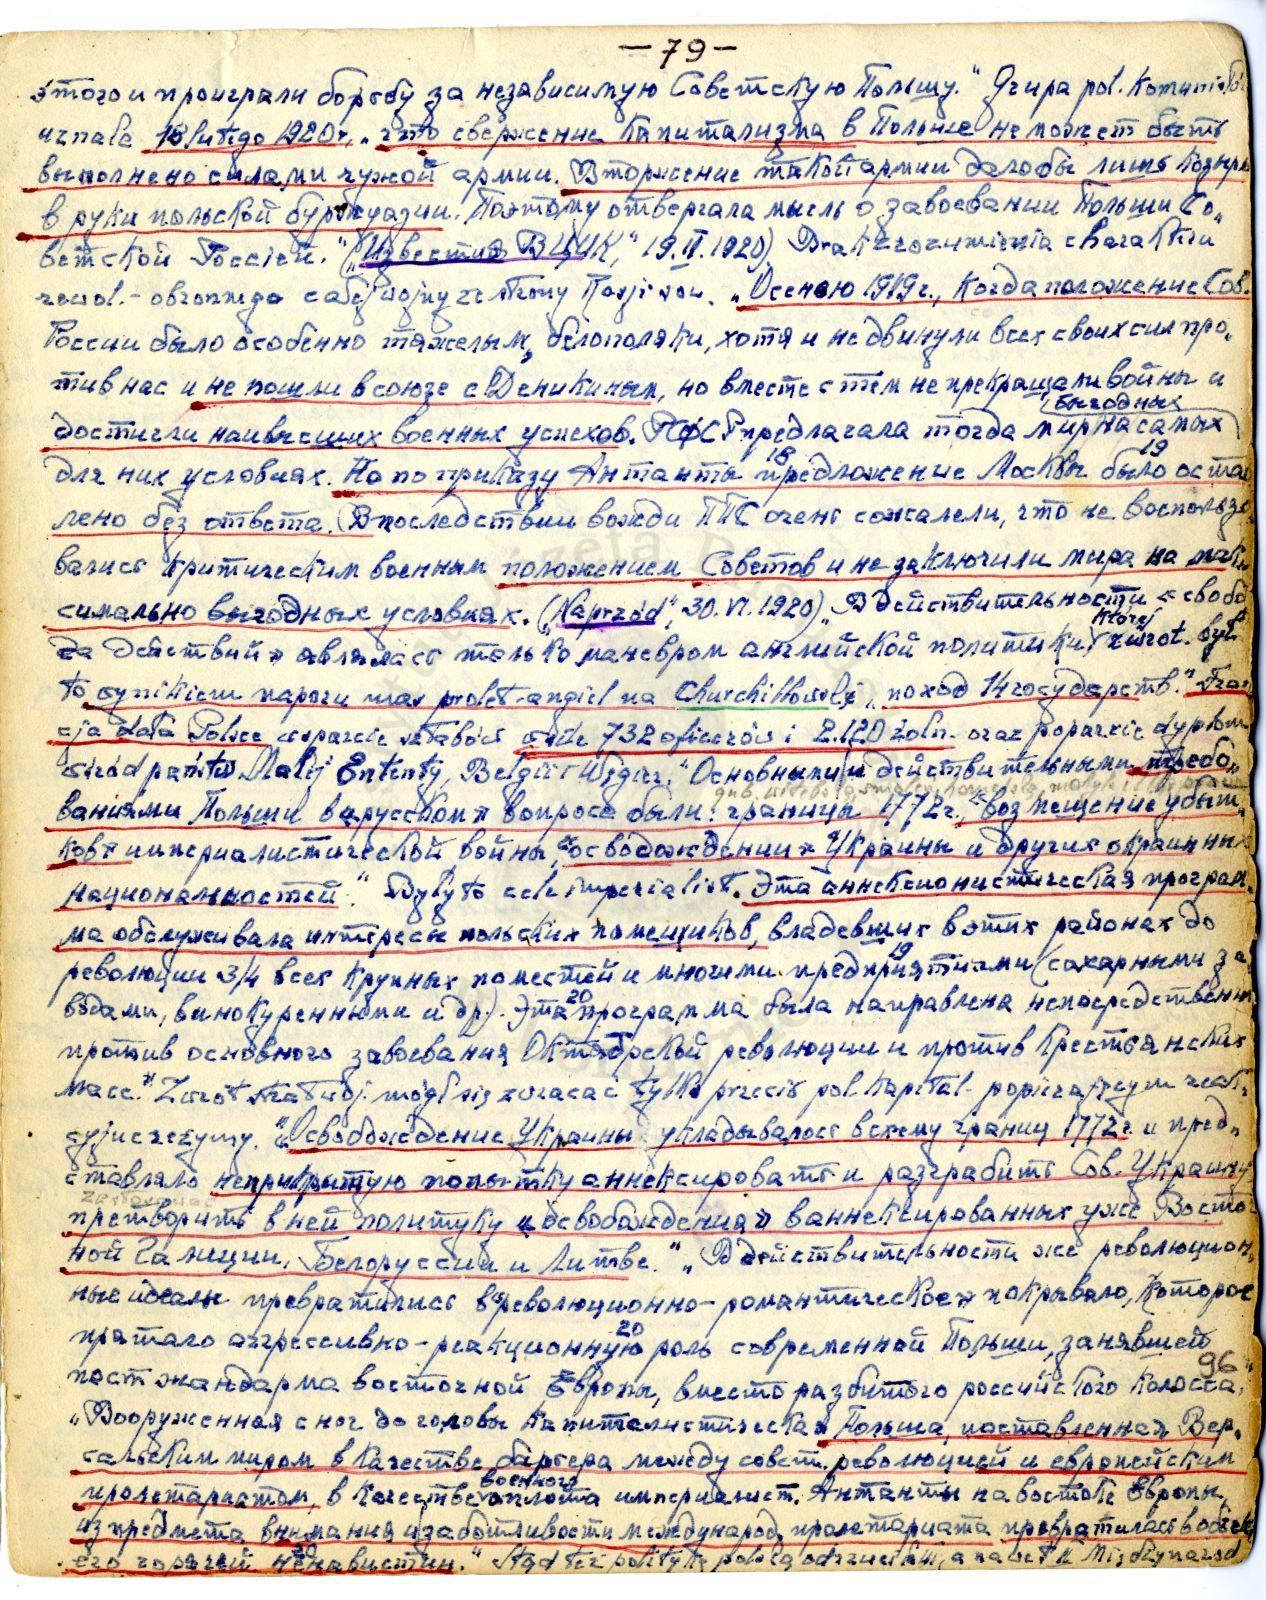 — 79 —
этого и проиграли борьбу за независимую Советскую Польшу." pol.
lutego 1920 r., „что свержение капитализма в Польше не может быть
выполнено силами чужой армии. Вторжение такой армии дало бы лишь козыри
в руки польской буржуазии. Поэтому отвергала мысль о завоевании Польши Со„
ветской Россией." („Известия ВЦИК," 1920) Brak zrozumienia charakteru
wojny ze strony Rosji sow. „Осенью 1919 г., когда положение Сов.
России было особенно тяжелым, белополяки, хотя и не двинули всех своих сил про„
тив нас и не пошли в союзе с Деникиным, но вместе с тем не прекращали войны и
выгодных
достигли наивысших военных успехов. РСФСР предлагала тогда мир на самых
18 19
для них условиях. Но по приказу Антанты предложение Москвы было остав
лено без ответа. (Впоследствии вожди ППС очень сожалели, что не воспользо
вались критическим военным положением Советов и не заключили мира на мак„
симально выгодных условиях. („Naprzód", 30.VI.1920)„ В действительности „свобо
której
да действий» являлась только маневром английской политики, zwrot. był
to wynikiem naporu mas prolet. angiel na Churchillowski „поход 14 государств." Fran
cja dała Polsce wsparcie sztabów 732 oficerów i 2.120 żołn. oraz poparcie dyplom
wśród państw Małej Ententy, Belgii i Węgier. „Основными и действительными требо„
ваниями Польши в «русском» вопросе были: границы 1772 г., «возмещение убыт„
ков» империалистической войны, «освобождении» Украины и других окраинных
национальностей." Były to cele imperialist. Эта аннексионистическая програм„
ма обслуживала интересы польских помещиков, владевших в этих районах до
19
революции 3/4 всех крупных поместей и многими предприятиями (сахарными за„
20
водами, винокуренными и др.). Эта программа была направлена непосредственно
против основного завоевания Октябрской революции и против крестьянских
масс." Zwrot mógł się zwracać tylko przeciw pol. kapital. popierającym reak„
cyjne reżymy. „Освобождение Украины укладывалось в схему границ 1772 г. и пред„
ставляло неприкрытую попытку аннексировать и разграбить Сов. Украину
zastosować
претворить в ней политику «освобождения» в аннексированных уже Восточ
ной Галиции, Белоруссии и Литве." „В действительности же революцион„
ные идеалы превратились в «революционно-романтическое» покрывало, которое
20
прятало агрессивно-реакционную роль современной Польши, занявшей
96
пост жандарма восточной Европы, вместо разбитого российского колосса.
„Вооруженная с ног до головы капиталистическая Польша, поставленная Вер„
сальским миром в качестве барьера между советск. революцией и европейским
военного
пролетариатом, в качестве оплота империалист. Антанты на востоке Европы,
из предмета внимания и заботливости международ. пролетариата превратилась в объект
20
его горячей ненависти." Stąd też politykę polską odrzucili, a nawet II Międzynarod